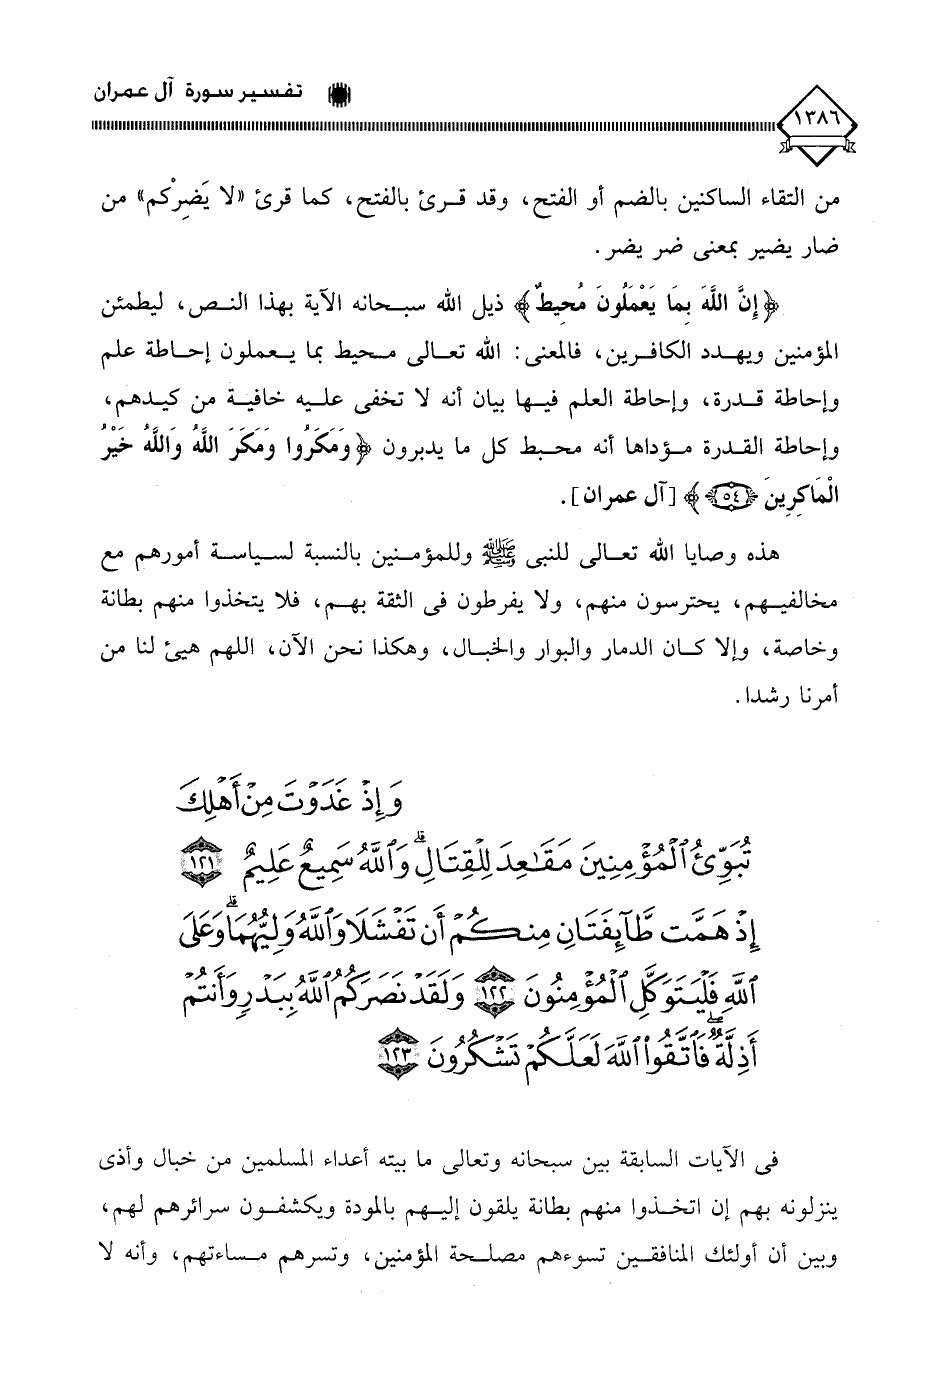 تفسير سورة آل عمران
١٣٨٦
من التقاء الساكنين بالضم أو الفتح، وقد قرئ بالفتح، كما قرئ «لا يَضِرْكم» من
ضار يضير بمعنى ضر يضر.
﴿إِنَّ اللَّهَ بِمَا يَعْمَلُونَ مُحِيطٌ﴾ ذيل الله سبحانه الآية بهذا النص، ليطمئن
المؤمنين ويهدد الكافرين، فالمعنى: الله تعالى محيط بما يعملون إحاطة علم
وإحاطة قدرة، وإحاطة العلم فيها بيان أنه لا تخفى عليه خافية من كيدهم،
وإحاطة القدرة مؤداها أنه محبط كل ما يدبرون ﴿وَمَكَرُوا وَمَكَرَ اللَّهُ وَاللَّهُ خَيْرُ
الْمَاكِرِينَ ﴿٥٤﴾﴾ [آل عمران].
هذه وصايا الله تعالى للنبى ﷺ وللمؤمنين بالنسبة لسياسة أمورهم مع
مخالفيهم، يحترسون منهم، ولا يفرطون فى الثقة بهم، فلا يتخذوا منهم بطانة
وخاصة، وإلا كان الدمار والبوار والخبال، وهكذا نحن الآن، اللهم هيئ لنا من
أمرنا رشدا.
وَإِذْ غَدَوْتَ مِنْ أَهْلِكَ
تُبَوِّئُ ٱلْمُؤْمِنِينَ مَقَـٰعِدَ لِلْقِتَالِ ۗ وَٱللَّهُ سَمِيعٌ عَلِيمٌ ﴿١٢١﴾
إِذْ هَمَّت طَّآئِفَتَانِ مِنكُمْ أَن تَفْشَلَا وَٱللَّهُ وَلِيُّهُمَا ۗ وَعَلَى
ٱللَّهِ فَلْيَتَوَكَّلِ ٱلْمُؤْمِنُونَ ﴿١٢٢﴾ وَلَقَدْ نَصَرَكُمُ ٱللَّهُ بِبَدْرٍ وَأَنتُمْ
أَذِلَّةٌ ۖ فَٱتَّقُوا۟ ٱللَّهَ لَعَلَّكُمْ تَشْكُرُونَ ﴿١٢٣﴾
فى الآيات السابقة بين سبحانه وتعالى ما بيته أعداء المسلمين من خبال وأذى
ينزلونه بهم إن اتخذوا منهم بطانة يلقون إليهم بالمودة ويكشفون سرائرهم لهم،
وبين أن أولئك المنافقين تسوءهم مصلحة المؤمنين، وتسرهم مساءتهم، وأنه لا